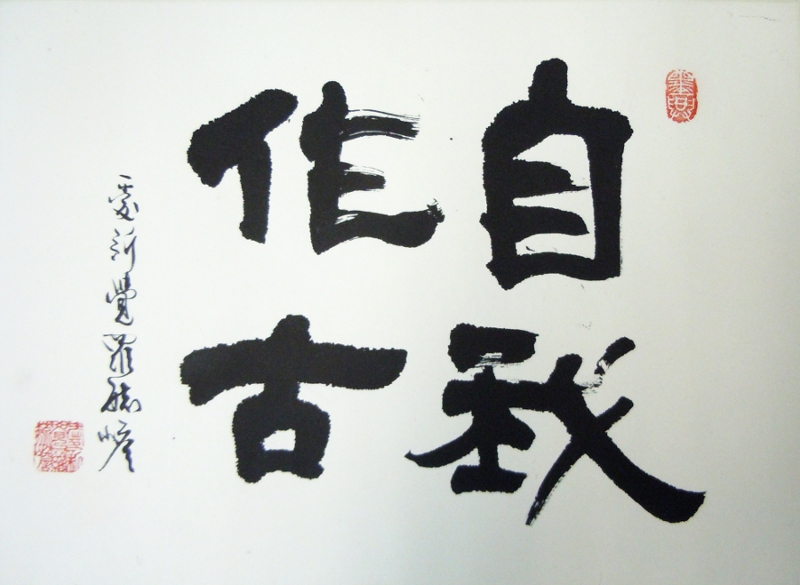 自我
作古
愛新覺羅毓嶦